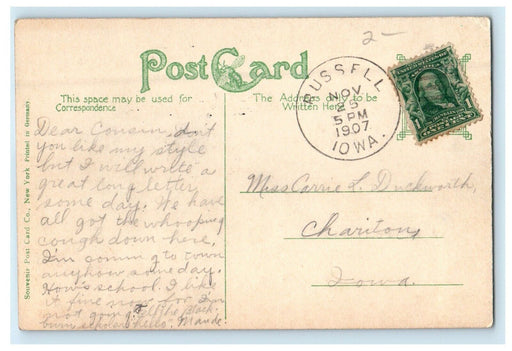 2-
Post Card
This space may be used for
Correspondence
The Address only to be
Written Here
RUSSELL
NOV
25
5 PM
1907
IOWA.
Souvenir Post Card Co., New York Printed in Germany.
Dear Cousin, don't
you like my style
but I will write a
great long letter
some day. We have
all got the whooping
cough down here.
I'm comming to town
anyhow some day.
How's school. I like
it fine now for I'm
not going. Tell the
burn scholars "hello". Maude.
Miss Carrie L. Duckworth,
Chariton,
Iowa.